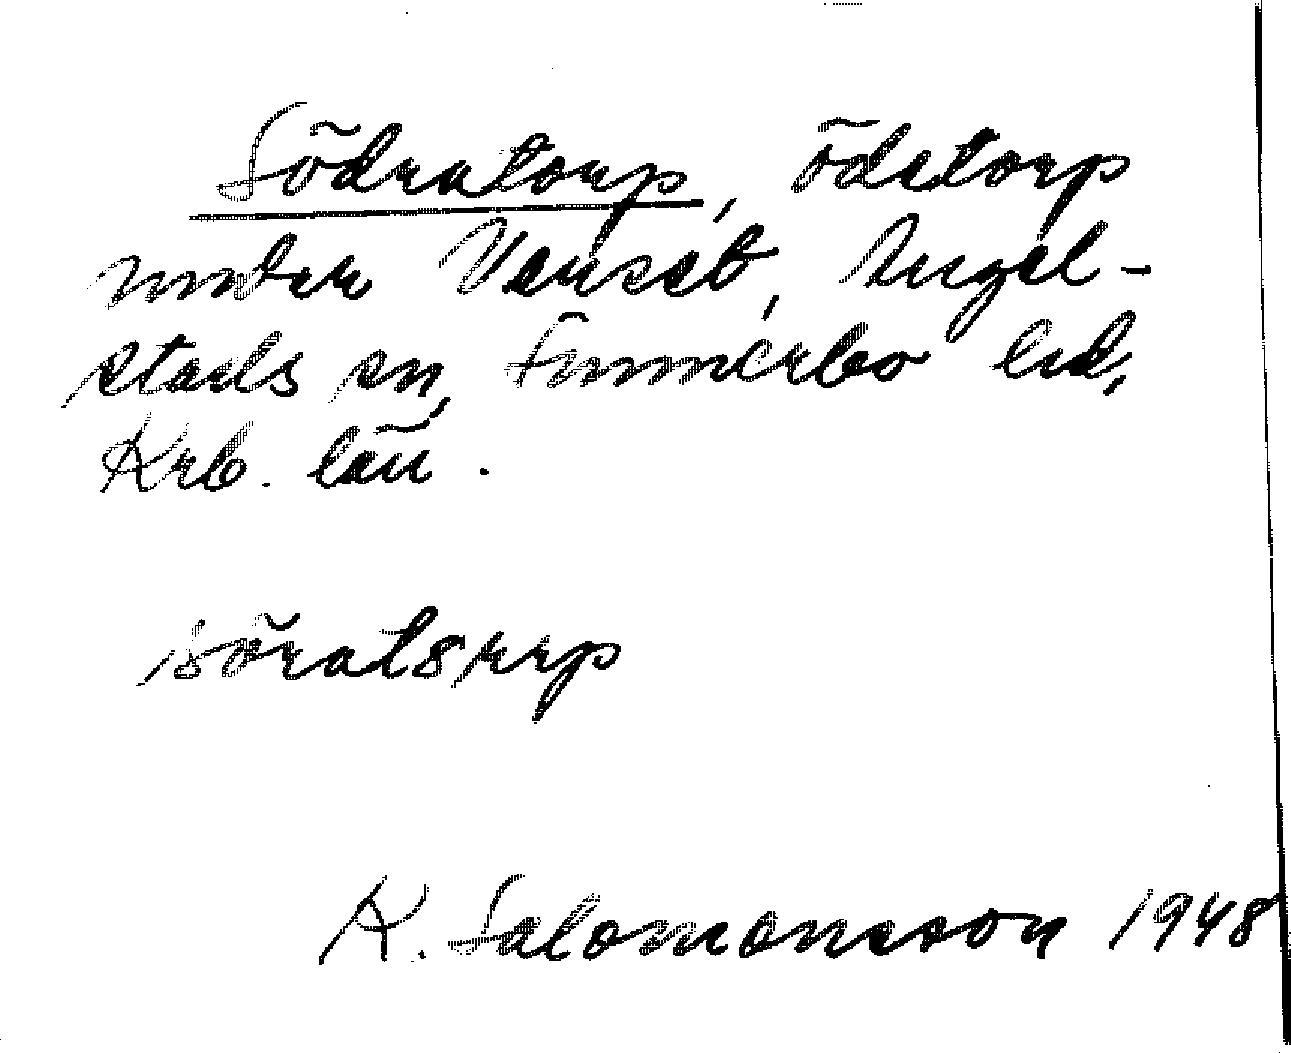 Södratorp, ödetorp
under Vanset, Angel-
stads sn, Sunnerbo hd,
Krb. län.
söratsrrp
K. Salomonsson 1948